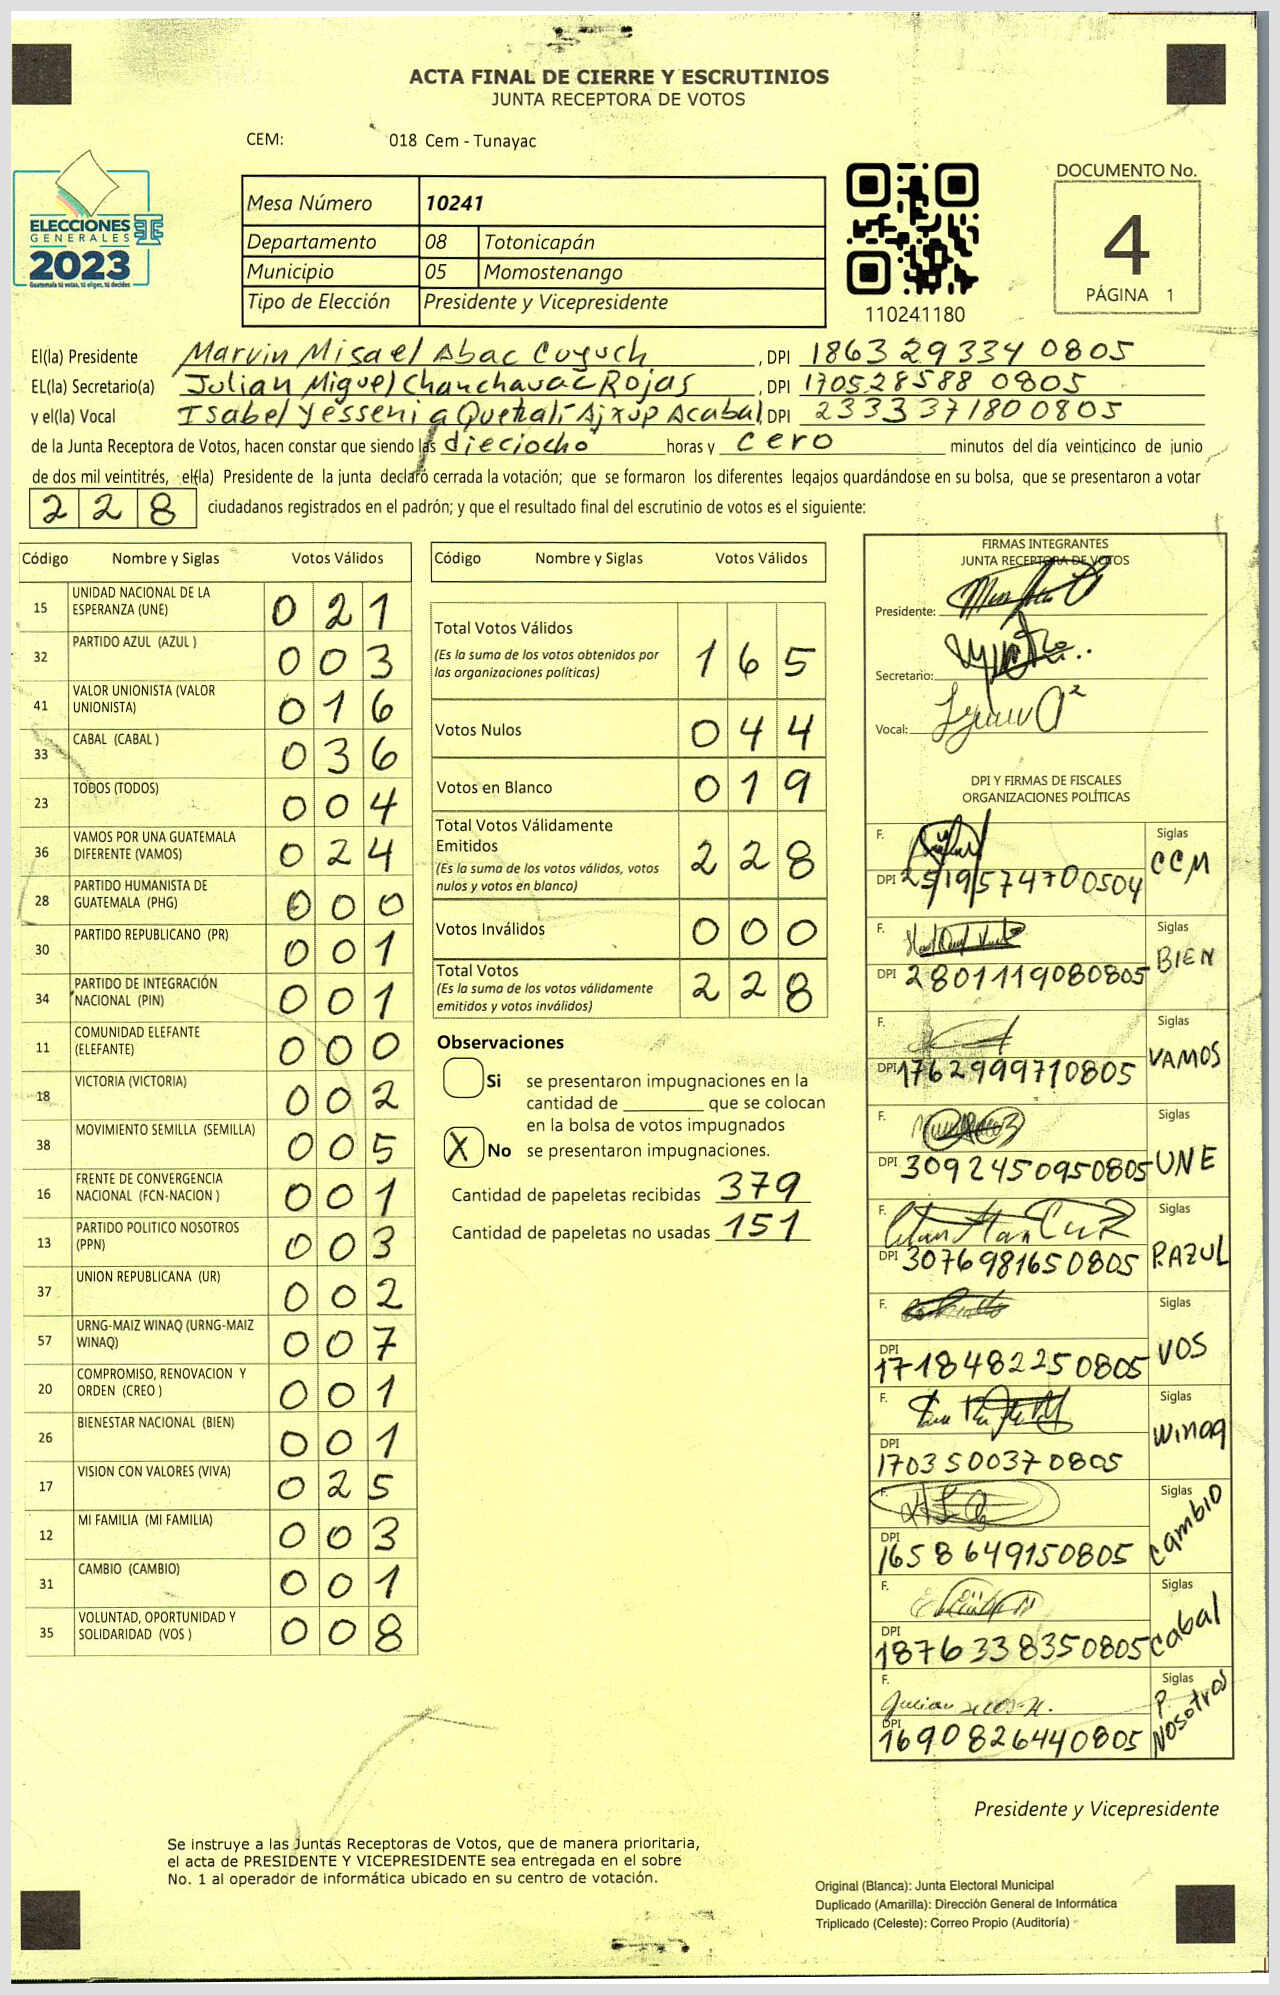 ACTA FINAL DE CIERRE Y ESCRUTINIOS
JUNTA RECEPTORA DE VOTOS
CEM: 018 Cem - Tunayac
ELECCIONES
GENERALES
2023
Guatemala tú votas, tú eliges, tú decides
Mesa Número 10241
Departamento 08 Totonicapán
Municipio 05 Momostenango
Tipo de Elección Presidente y Vicepresidente
110241180
DOCUMENTO No.
4
PÁGINA 1
El(la) Presidente Marvin Misael Abac Cuyuch, DPI 1863 29334 0805
EL(la) Secretario(a) Julian Miguel Chanchavac Rojas, DPI 170528588 0805
y el(la) Vocal Isabel Yessenia Quetzali Ajxup Acabal, DPI 2333371800805
de la Junta Receptora de Votos, hacen constar que siendo las dieciocho horas y cero minutos del día veinticinco de junio
de dos mil veintitrés, el(la) Presidente de la junta declaró cerrada la votación; que se formaron los diferentes legajos quardándose en su bolsa, que se presentaron a votar
228 ciudadanos registrados en el padrón; y que el resultado final del escrutinio de votos es el siguiente:
Código Nombre y Siglas Votos Válidos
15 UNIDAD NACIONAL DE LA ESPERANZA (UNE) 021
32 PARTIDO AZUL (AZUL ) 003
41 VALOR UNIONISTA (VALOR UNIONISTA) 016
33 CABAL (CABAL ) 036
23 TODOS (TODOS) 004
36 VAMOS POR UNA GUATEMALA DIFERENTE (VAMOS) 024
28 PARTIDO HUMANISTA DE GUATEMALA (PHG) 000
30 PARTIDO REPUBLICANO (PR) 001
34 PARTIDO DE INTEGRACIÓN NACIONAL (PIN) 001
11 COMUNIDAD ELEFANTE (ELEFANTE) 000
18 VICTORIA (VICTORIA) 002
38 MOVIMIENTO SEMILLA (SEMILLA) 005
16 FRENTE DE CONVERGENCIA NACIONAL (FCN-NACION ) 001
13 PARTIDO POLITICO NOSOTROS (PPN) 003
37 UNION REPUBLICANA (UR) 002
57 URNG-MAIZ WINAQ (URNG-MAIZ WINAQ) 007
20 COMPROMISO, RENOVACION Y ORDEN (CREO ) 001
26 BIENESTAR NACIONAL (BIEN) 001
17 VISION CON VALORES (VIVA) 025
12 MI FAMILIA (MI FAMILIA) 003
31 CAMBIO (CAMBIO) 001
35 VOLUNTAD, OPORTUNIDAD Y SOLIDARIDAD (VOS ) 008
Código Nombre y Siglas Votos Válidos
Total Votos Válidos 165
(Es la suma de los votos obtenidos por
las organizaciones políticas)
Votos Nulos 044
Votos en Blanco 019
Total Votos Válidamente
Emitidos 228
(Es la suma de los votos válidos, votos
nulos y votos en blanco)
Votos Inválidos 000
Total Votos 228
(Es la suma de los votos válidamente
emitidos y votos inválidos)
Observaciones
Si se presentaron impugnaciones en la
cantidad de ________ que se colocan
en la bolsa de votos impugnados
X No se presentaron impugnaciones.
Cantidad de papeletas recibidas 379
Cantidad de papeletas no usadas 151
FIRMAS INTEGRANTES
JUNTA RECEPTORA DE VOTOS
Presidente:
Secretario:
Vocal:
DPI Y FIRMAS DE FISCALES
ORGANIZACIONES POLÍTICAS
F. Siglas CCM
DPI 2519574700504
F. Siglas BIEN
DPI 2801119080805
F. Siglas VAMOS
DPI 1762999710805
F. Siglas UNE
DPI 3092450950805
F. Siglas P.AZUL
DPI 3076981650805
F. Siglas VOS
DPI 1718482250805
F. Siglas Winaq
DPI 1703500370805
F. Siglas Cambio
DPI 1658649150805
F. Siglas Cabal
DPI 1876338350805
F. Siglas P. Nosotros
DPI 1690826440805
Presidente y Vicepresidente
Se instruye a las Juntas Receptoras de Votos, que de manera prioritaria,
el acta de PRESIDENTE Y VICEPRESIDENTE sea entregada en el sobre
No. 1 al operador de informática ubicado en su centro de votación.
Original (Blanca): Junta Electoral Municipal
Duplicado (Amarilla): Dirección General de Informática
Triplicado (Celeste): Correo Propio (Auditoría)